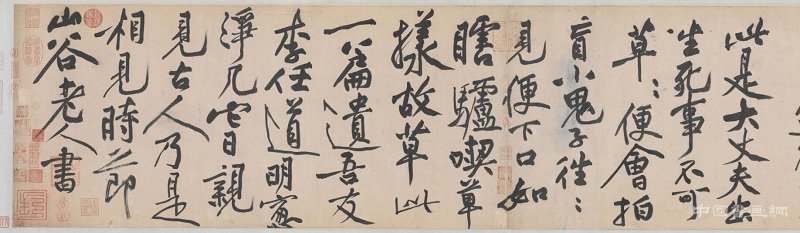 此是大丈夫出
生死事不可
草〻便會拍
盲小鬼子往〻
見便下口如
瞎驢喫草
樣故草此
一篇遺吾友
李任道明窻
淨几它日親
見古人乃是
相見時節
山谷老人書